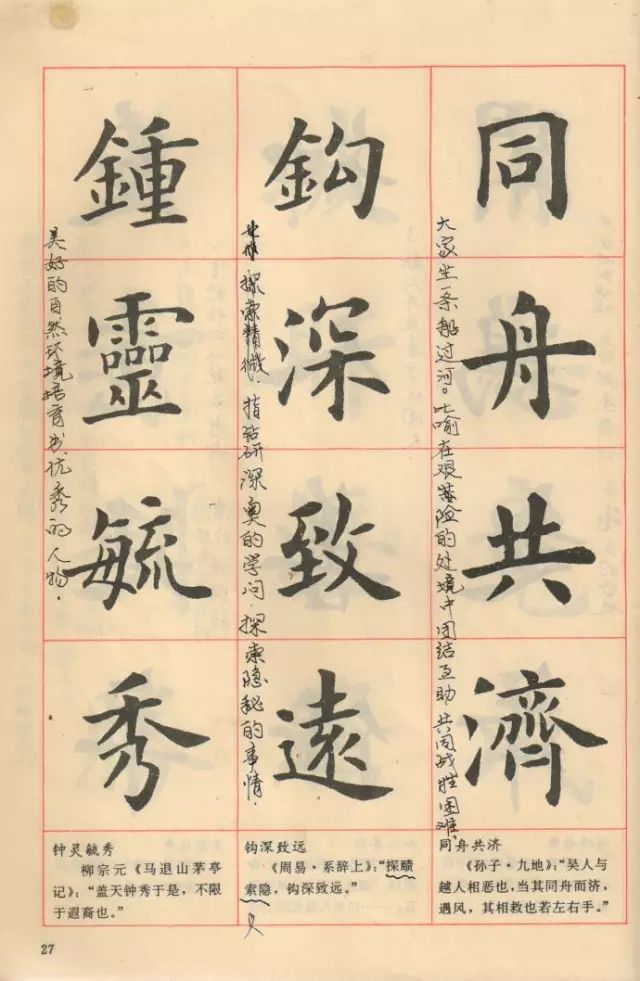 同舟共濟
大家坐一条船过河。比喻在艰险的处境中团结互助,共同战胜困难.
鈎深致遠
探索精微.指钻研深奥的学问.探索隐秘的事情.
鍾靈毓秀
美好的自然环境培育出优秀的人物.
同舟共济
《孙子·九地》:“吴人与
越人相恶也,当其同舟而济,
遇风,其相救也若左右手。”
钩深致远
《周易·系辞上》:“探赜
索隐,钩深致远。”
钟灵毓秀
柳宗元《马退山茅亭
记》:“盖天钟秀于是,不限
于遐裔也。”
27